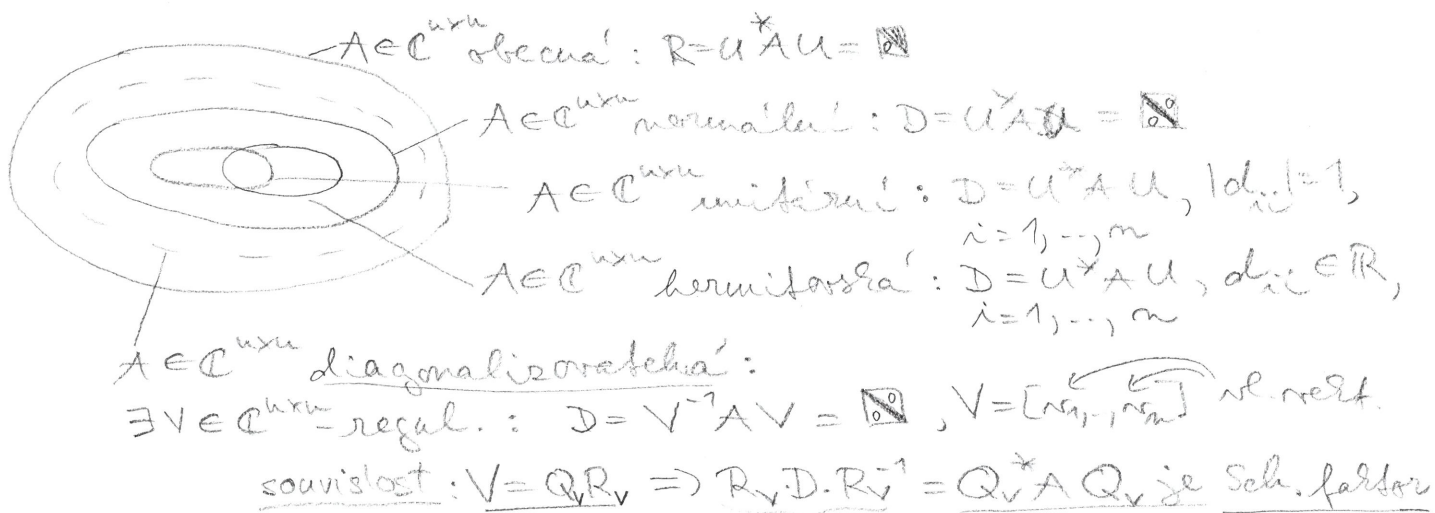 A∈ℂⁿˣⁿ obecná: R=U*AU=
A∈ℂⁿˣⁿ normální: D=U*AU=
A∈ℂⁿˣⁿ unitární: D=U*AU, |dᵢᵢ|=1,
i=1,..,n
A∈ℂⁿˣⁿ hermitovská: D=U*AU, dᵢᵢ∈ℝ,
i=1,..,n
A∈ℂⁿˣⁿ diagonalizovatelná:
∃V∈ℂⁿˣⁿ-regul.: D=V⁻¹AV= , V=[v₁,..,vₙ] vl. vekt.
souvislost: V=QᵥRᵥ => Rᵥ·D·Rᵥ⁻¹=Qᵥ*AQᵥ je Sch. faktor